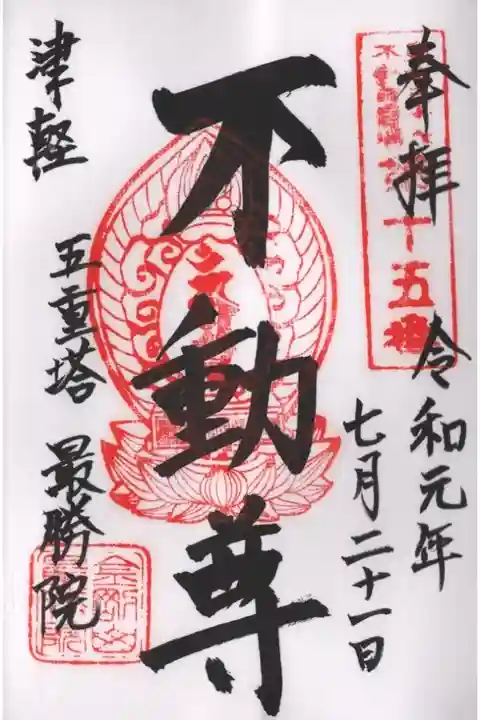 奉拝
令和元年
七月二十一日
不動尊
津軽
五重塔 最勝院